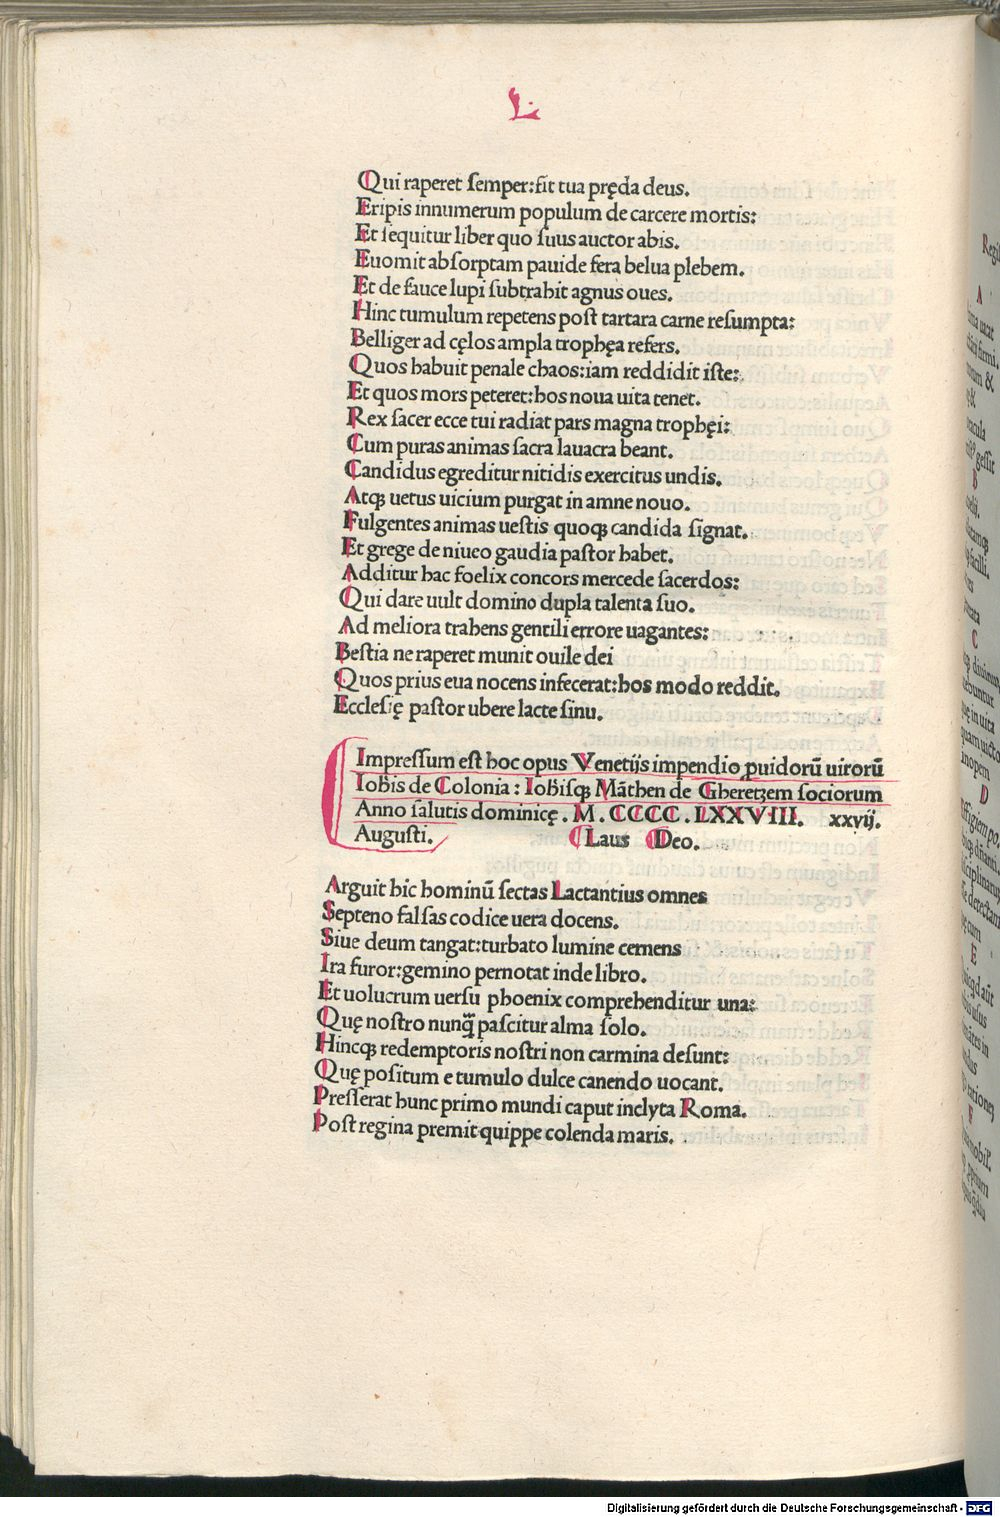 L
Qui raperet ſemper:fit tua pręda deus.
Eripis innumerum populum de carcere mortis:
Et ſequitur liber quo ſuus auctor abis.
Euomit abſorptam pauide fera belua plebem.
Et de fauce lupi ſubtrahit agnus oues.
Hinc tumulum repetens poſt tartara carne reſumpta:
Belliger ad cęlos ampla trophęa refers.
Quos habuit penale chaos:iam reddidit iſte:
Et quos mors peteret:hos noua uita tenet.
Rex ſacer ecce tui radiat pars magna trophęi:
Cum puras animas ſacra lauacra beant.
Candidus egreditur nitidis exercitus undis.
Atqꝫ uetus uicium purgat in amne nouo.
Fulgentes animas ueſtis quoqꝫ candida ſignat.
Et grege de niueo gaudia paſtor habet.
Additur hac foelix concors mercede ſacerdos:
Qui dare uult domino dupla talenta ſuo.
Ad meliora trahens gentili errore uagantes:
Beſtia ne raperet munit ouile dei
Quos prius eua nocens infecerat:hos modo reddit.
Eccleſię paſtor ubere lacte ſinu.
Impreſſum eſt hoc opus Venetijs impendio ꝓuidorū uirorū
Iohis de Colonia: Iohiſqꝫ Māthen de Gheretzem ſociorum
Anno ſalutis dominicę. M. CCCC. LXXVIII. xxvij.
Auguſti. Laus Deo.
Arguit hic hominū ſectas Lactantius omnes
Septeno falſas codice uera docens.
Siue deum tangat:turbato lumine cernens
Ira furor:gemino pernotat inde libro.
Et uolucrum uerſu phoenix comprehenditur una:
Quę noſtro nunq̄ paſcitur alma ſolo.
Hincqꝫ redemptoris noſtri non carmina deſunt:
Quę poſitum e tumulo dulce canendo uocant.
Preſſerat hunc primo mundi caput inclyta Roma.
Poſt regina premit quippe colenda maris.
Digitalisierung gefördert durch die Deutsche Forschungsgemeinschaft - DFG